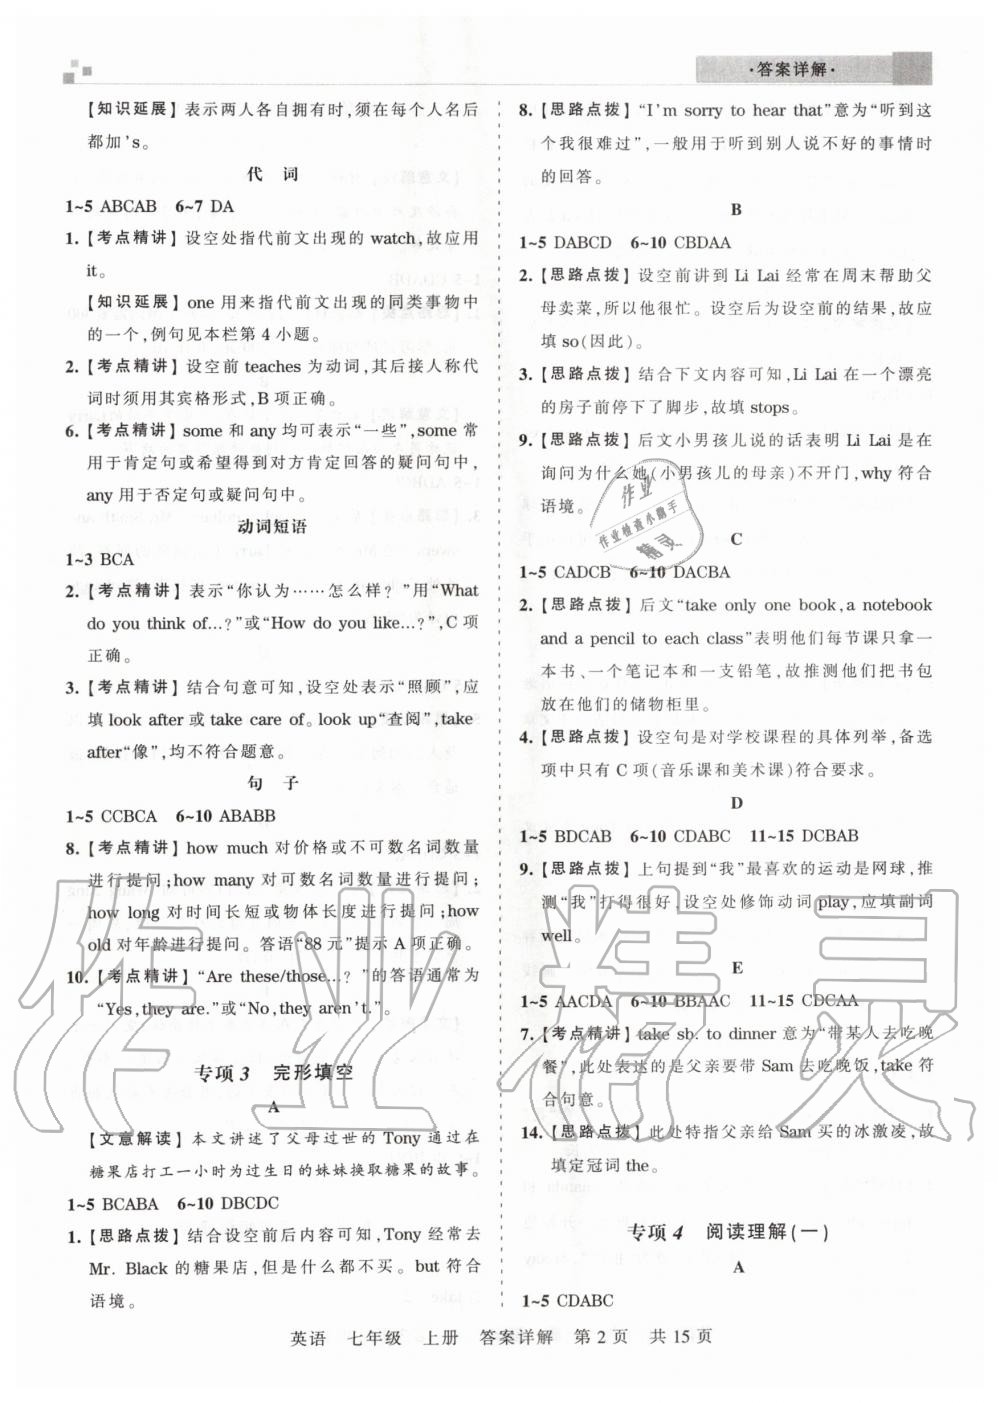 ·答案详解·
【知识延展】表示两人各自拥有时,须在每个人名后
都加's。
代 词
1~5 ABCAB 6~7 DA
1.【考点精讲】设空处指代前文出现的 watch,故应用
it。
【知识延展】one 用来指代前文出现的同类事物中
的一个,例句见本栏第 4 小题。
2.【考点精讲】设空前 teaches 为动词,其后接人称代
词时须用其宾格形式,B 项正确。
6.【考点精讲】some 和 any 均可表示“一些”,some 常
用于肯定句或希望得到对方肯定回答的疑问句中,
any 用于否定句或疑问句中。
动词短语
1~3 BCA
2.【考点精讲】表示“你认为……怎么样?”用“What
do you think of…?”或“How do you like…?”,C 项
正确。
3.【考点精讲】结合句意可知,设空处表示“照顾”,应
填 look after 或 take care of。look up“查阅”,take
after“像”,均不符合题意。
句 子
1~5 CCBCA 6~10 ABABB
8.【考点精讲】how much 对价格或不可数名词数量
进行提问;how many 对可数名词数量进行提问;
how long 对时间长短或物体长度进行提问;how
old 对年龄进行提问。答语“88 元”提示 A 项正确。
10.【考点精讲】“Are these/those…?”的答语通常为
“Yes,they are.”或“No,they aren't.”。
专项 3 完形填空
A
【文意解读】本文讲述了父母过世的 Tony 通过在
糖果店打工一小时为过生日的妹妹换取糖果的故事。
1~5 BCABA 6~10 DBCDC
1.【思路点拨】结合设空前后内容可知,Tony 经常去
Mr. Black 的糖果店,但是什么都不买。but 符合
语境。
8.【思路点拨】“I'm sorry to hear that”意为“听到这
个我很难过”,一般用于听到别人说不好的事情时
的回答。
B
1~5 DABCD 6~10 CBDAA
2.【思路点拨】设空前讲到 Li Lai 经常在周末帮助父
母卖菜,所以他很忙。设空后为设空前的结果,故应
填 so(因此)。
3.【思路点拨】结合下文内容可知,Li Lai 在一个漂亮
的房子前停下了脚步,故填 stops。
9.【思路点拨】后文小男孩儿说的话表明 Li Lai 是在
询问为什么她(小男孩儿的母亲)不开门,why 符合
语境。
C
1~5 CADCB 6~10 DACBA
2.【思路点拨】后文“take only one book,a notebook
and a pencil to each class”表明他们每节课只拿一
本书、一个笔记本和一支铅笔,故推测他们把书包
放在他们的储物柜里。
4.【思路点拨】设空句是对学校课程的具体列举,备选
项中只有 C 项(音乐课和美术课)符合要求。
D
1~5 BDCAB 6~10 CDABC 11~15 DCBAB
9.【思路点拨】上句提到“我”最喜欢的运动是网球,推
测“我”打得很好,设空处修饰动词 play,应填副词
well。
E
1~5 AACDA 6~10 BBAAC 11~15 CDCAA
7.【考点精讲】take sb. to dinner 意为“带某人去吃晚
餐”,此处表达的是父亲要带 Sam 去吃晚饭,take 符
合句意。
14.【思路点拨】此处特指父亲给 Sam 买的冰激凌,故
填定冠词 the。
专项 4 阅读理解(一)
A
1~5 CDABC
英语 七年级 上册 答案详解 第 2 页 共 15 页
作业
作业检查小助手
精灵
作业精灵